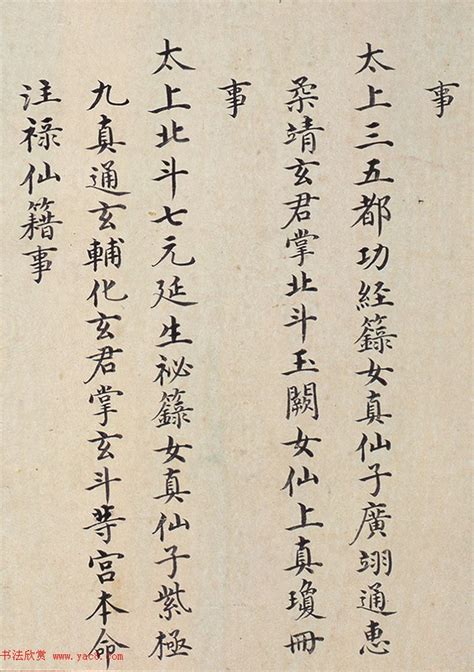 事
太上三五都功經籙女真仙子廣翊通惠
柔靖玄君掌北斗玉闕女仙上真瓊冊
事
太上北斗七元延生祕籙女真仙子紫極
九真通玄輔化玄君掌玄斗等宮本命
注祿仙籍事
书法欣赏 www.yac8.com